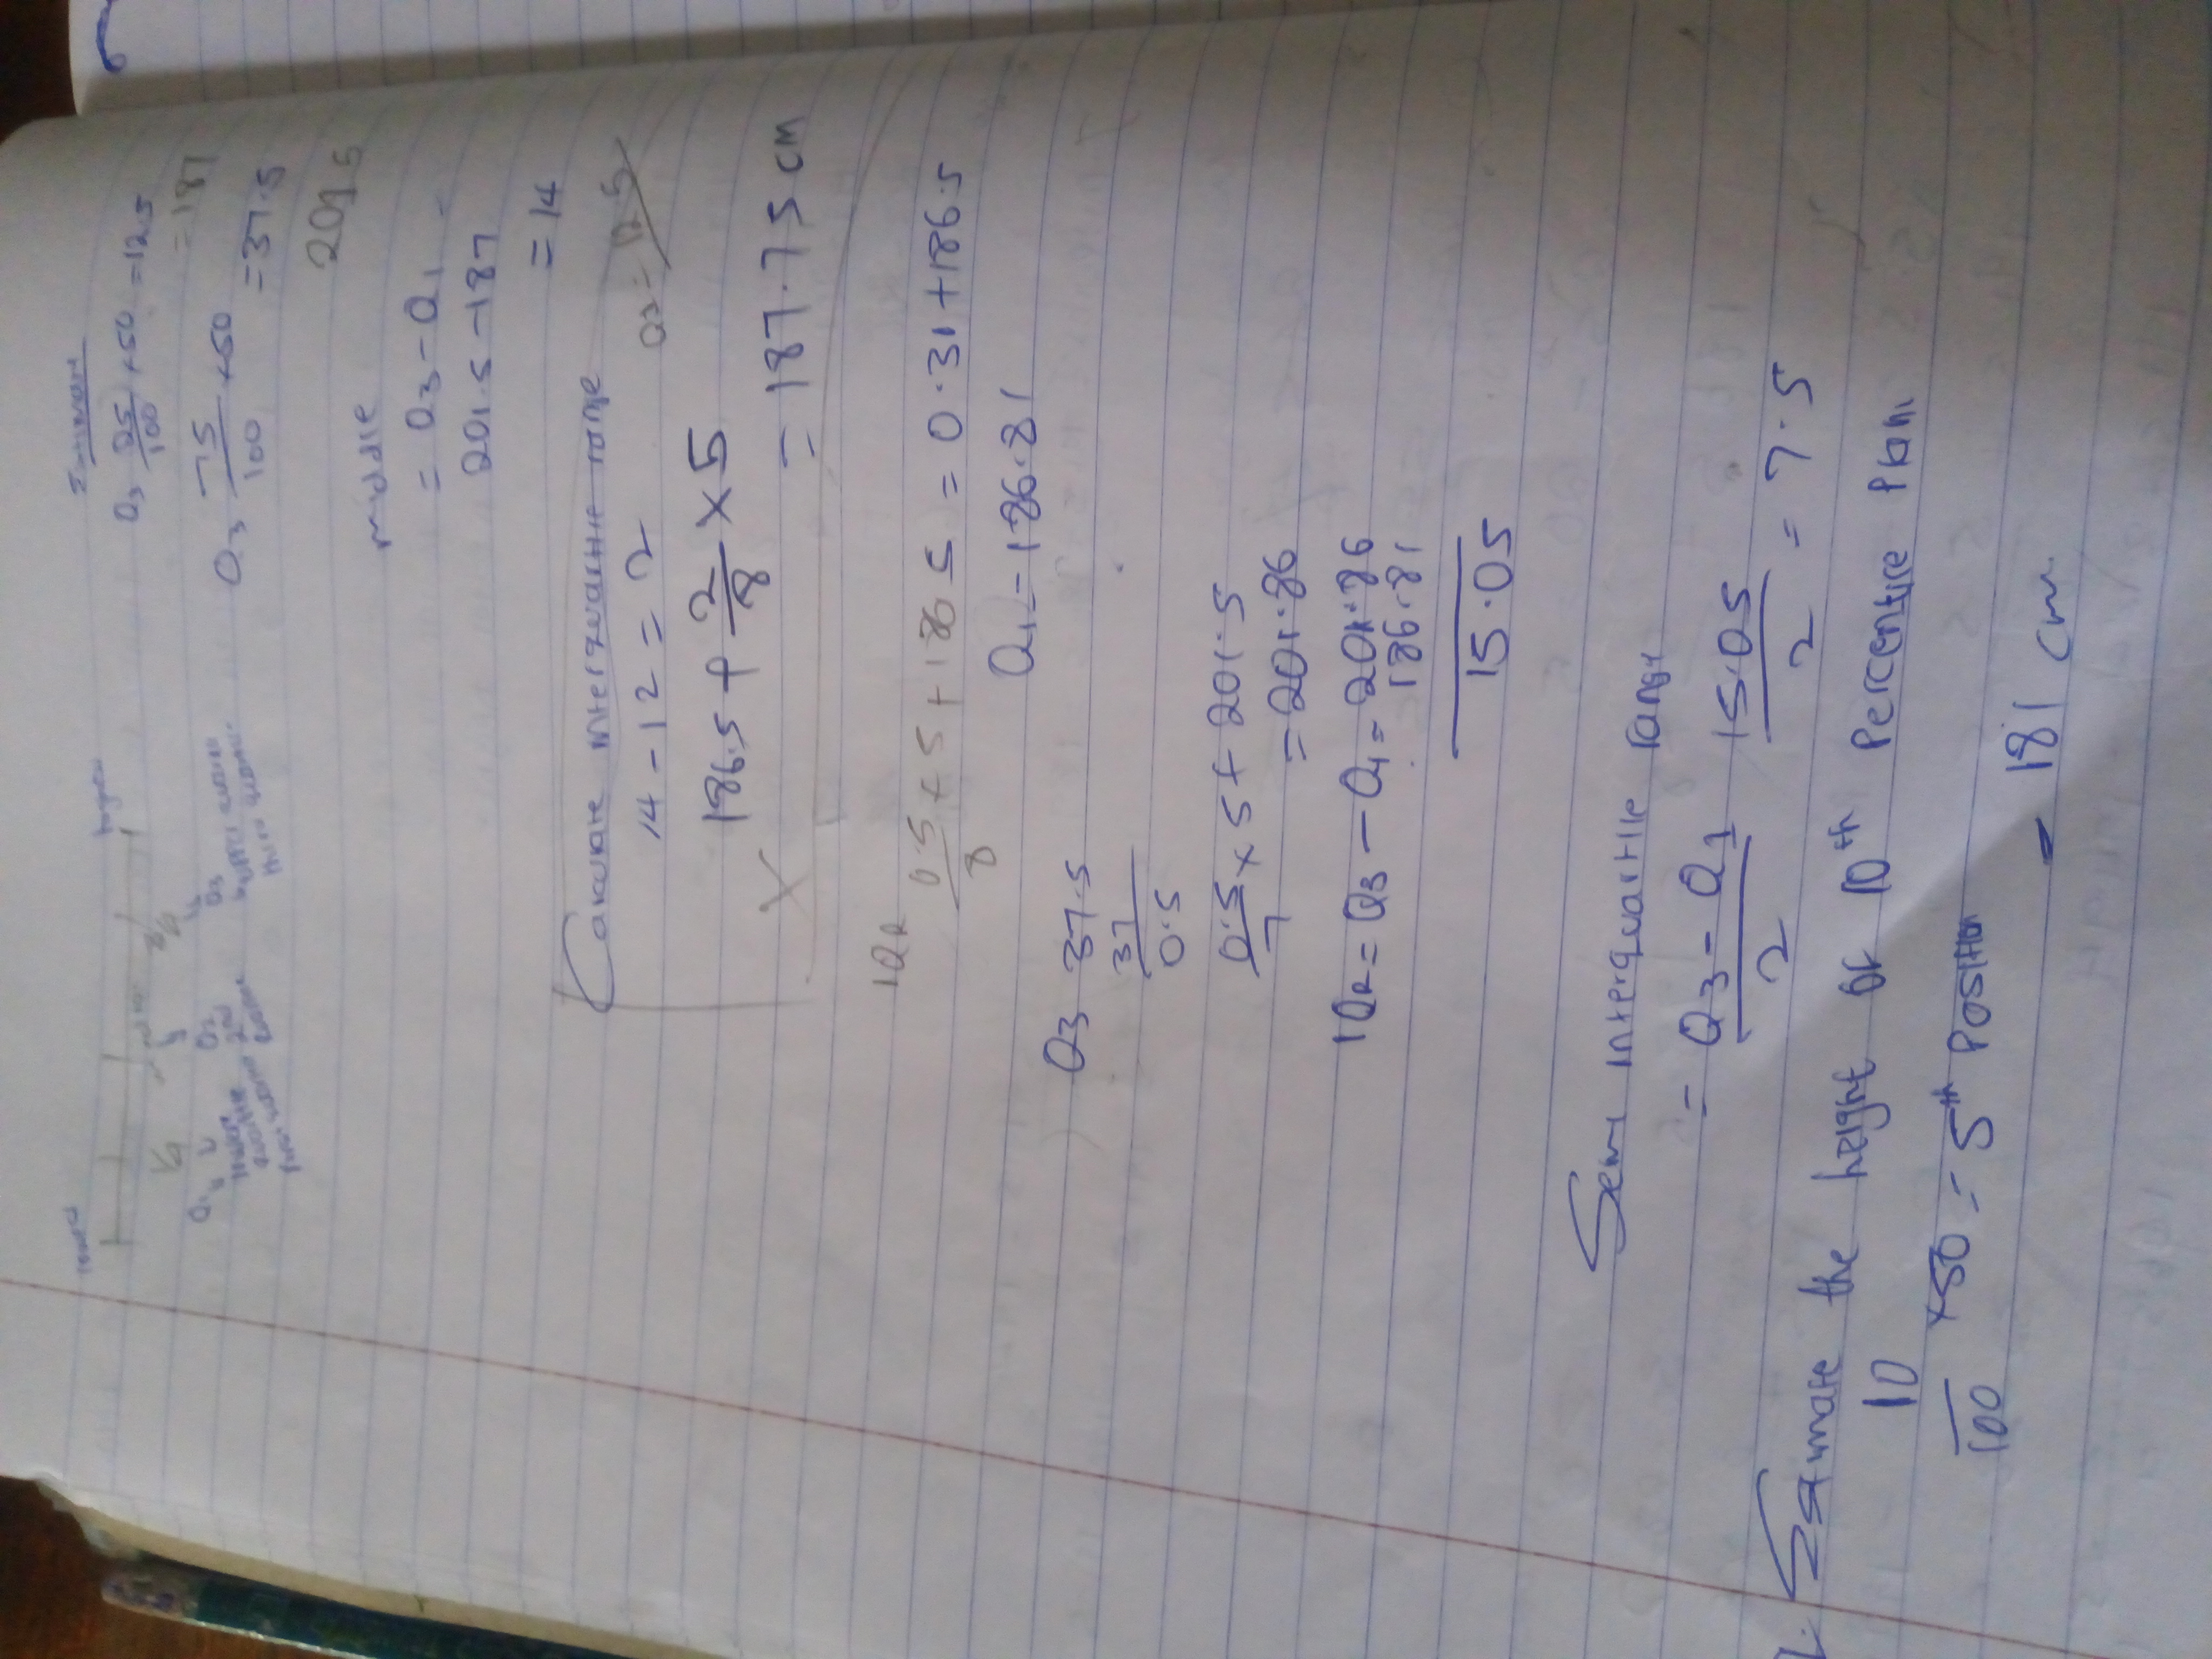 lowest
highest
1/4
3/4
Q1
Q2
Q3
lower
quartile
first quartile
2nd
quartile
upper quartile
third quartile
Estimate
Q3 25/100 ×50 =12.5
=187
Q3 75/100 ×50
=37.5
201.5
middle
= Q3 - Q1
201.5 - 187
= 14
Calculate interquartile range
14 - 12 = 2
Q3 = 12.5
186.5 + 2/8 × 5
X
= 187.75 cm
IQR
0.5/8 × 5 + 186.5 = 0.31 + 186.5
Q1 = 186.81
Q3 37.5
37
0.5
0.5/7 × 5 + 201.5
= 201.86
IQR = Q3 - Q1 = 201.86
186.81
15.05
Semi interquartile range
= Q3 - Q1/2 15.05/2 = 7.5
Estimate the height of 10th Percentile
10/100 ×50 = 5th Position
= 181 cm.